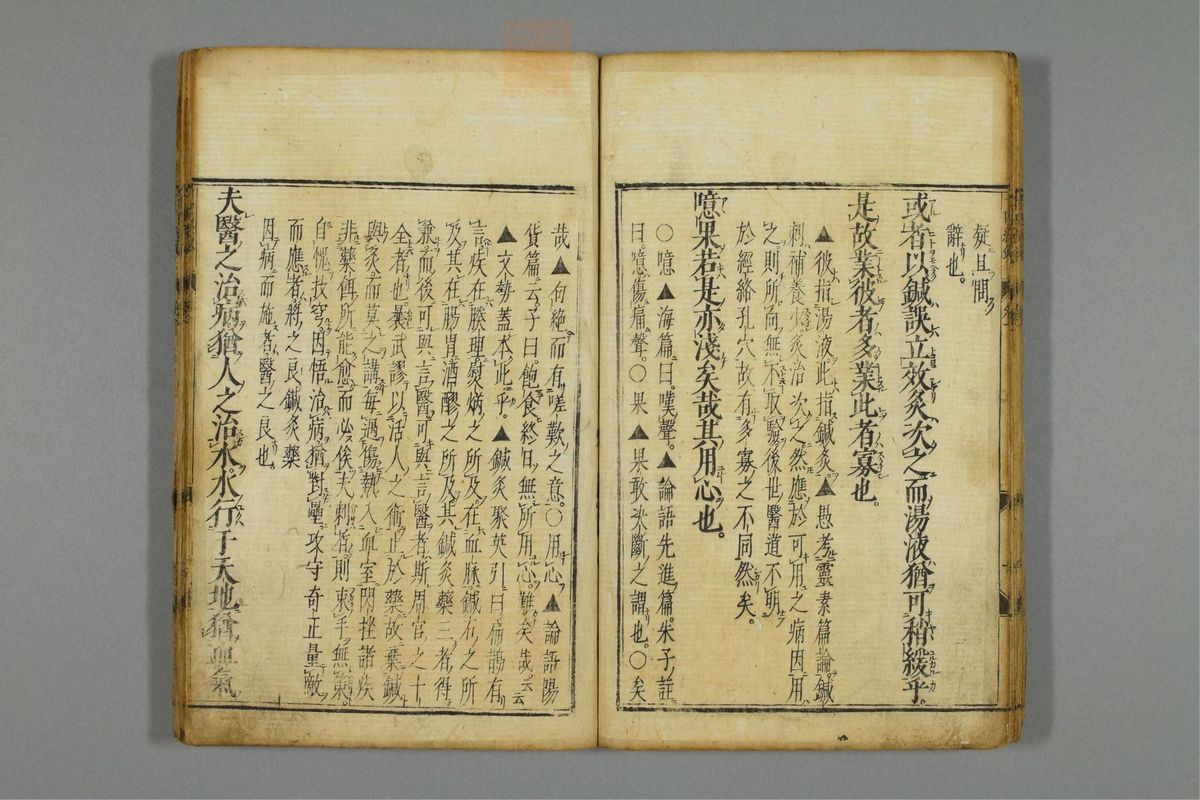 疑且問
辭也。
或者以鍼誤立效灸次之而湯液猶可稍緩乎。
是故業彼者多業此者寡也。
▲彼指湯液此指鍼灸▲愚考靈素篇論鍼
刺補養少灸治次之然應於可用之病因用
之則所向無不取驗後世醫道不明
於經絡孔穴故有多寡之不同然矣。
噫果若是亦淺矣哉其用心也。
○噫▲海篇曰嘆聲。▲論語先進篇。朱子註
曰。噫傷痛聲。○果▲果敢決斷之謂也。○矣
哉▲句絶而有嗟歎之意。○用心▲論語陽
貨篇云子曰飽食終日無所用心。難矣哉。云云
▲文勢蓋本此乎。▲鍼灸聚英引曰扁鵲有
言疾在腠理熨焫之所及在血脉鍼石之所
及其在腸胃酒醪之所及其鍼灸藥三者得
兼而後可與言醫可與言醫者斯周官之十
全者也曩武謬以活人之術止於藥故棄鍼
與灸而莫之講每遇傷熱入血室閃挫諸疾
非藥餌所能愈而必俟夫刺者則束手無策。
自愧技窮因悟治病猶對壘攻守奇正量敵
而應者將之良鍼灸藥
因病而施者醫之良也
夫醫之治病猶人之治水水行于天地猶血氣